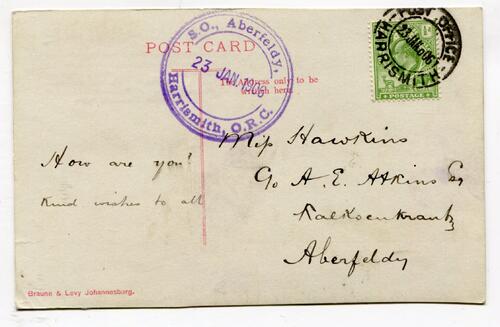 POST CARD
S.O., Aberfeldy,
23 JAN. 1906
Harrismith, O.R.C.
The Address only to be
written here.
POST OFFICE
HARRISMITH
½d
POSTAGE
Miss Hawkins
c/o A. E. Atkins Esq
Kalkoenkrantz
Aberfeldy
How are you?
Kind wishes to all
Braune & Levy Johannesburg.